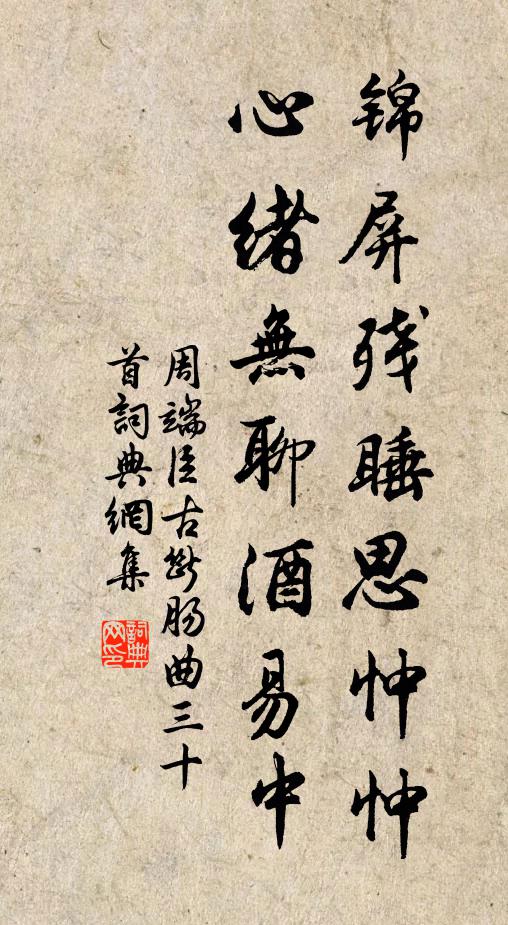 锦屏残睡思忡忡
心绪無聊酒易中
周端臣古断肠曲三十
首詞典網集
詞典网印